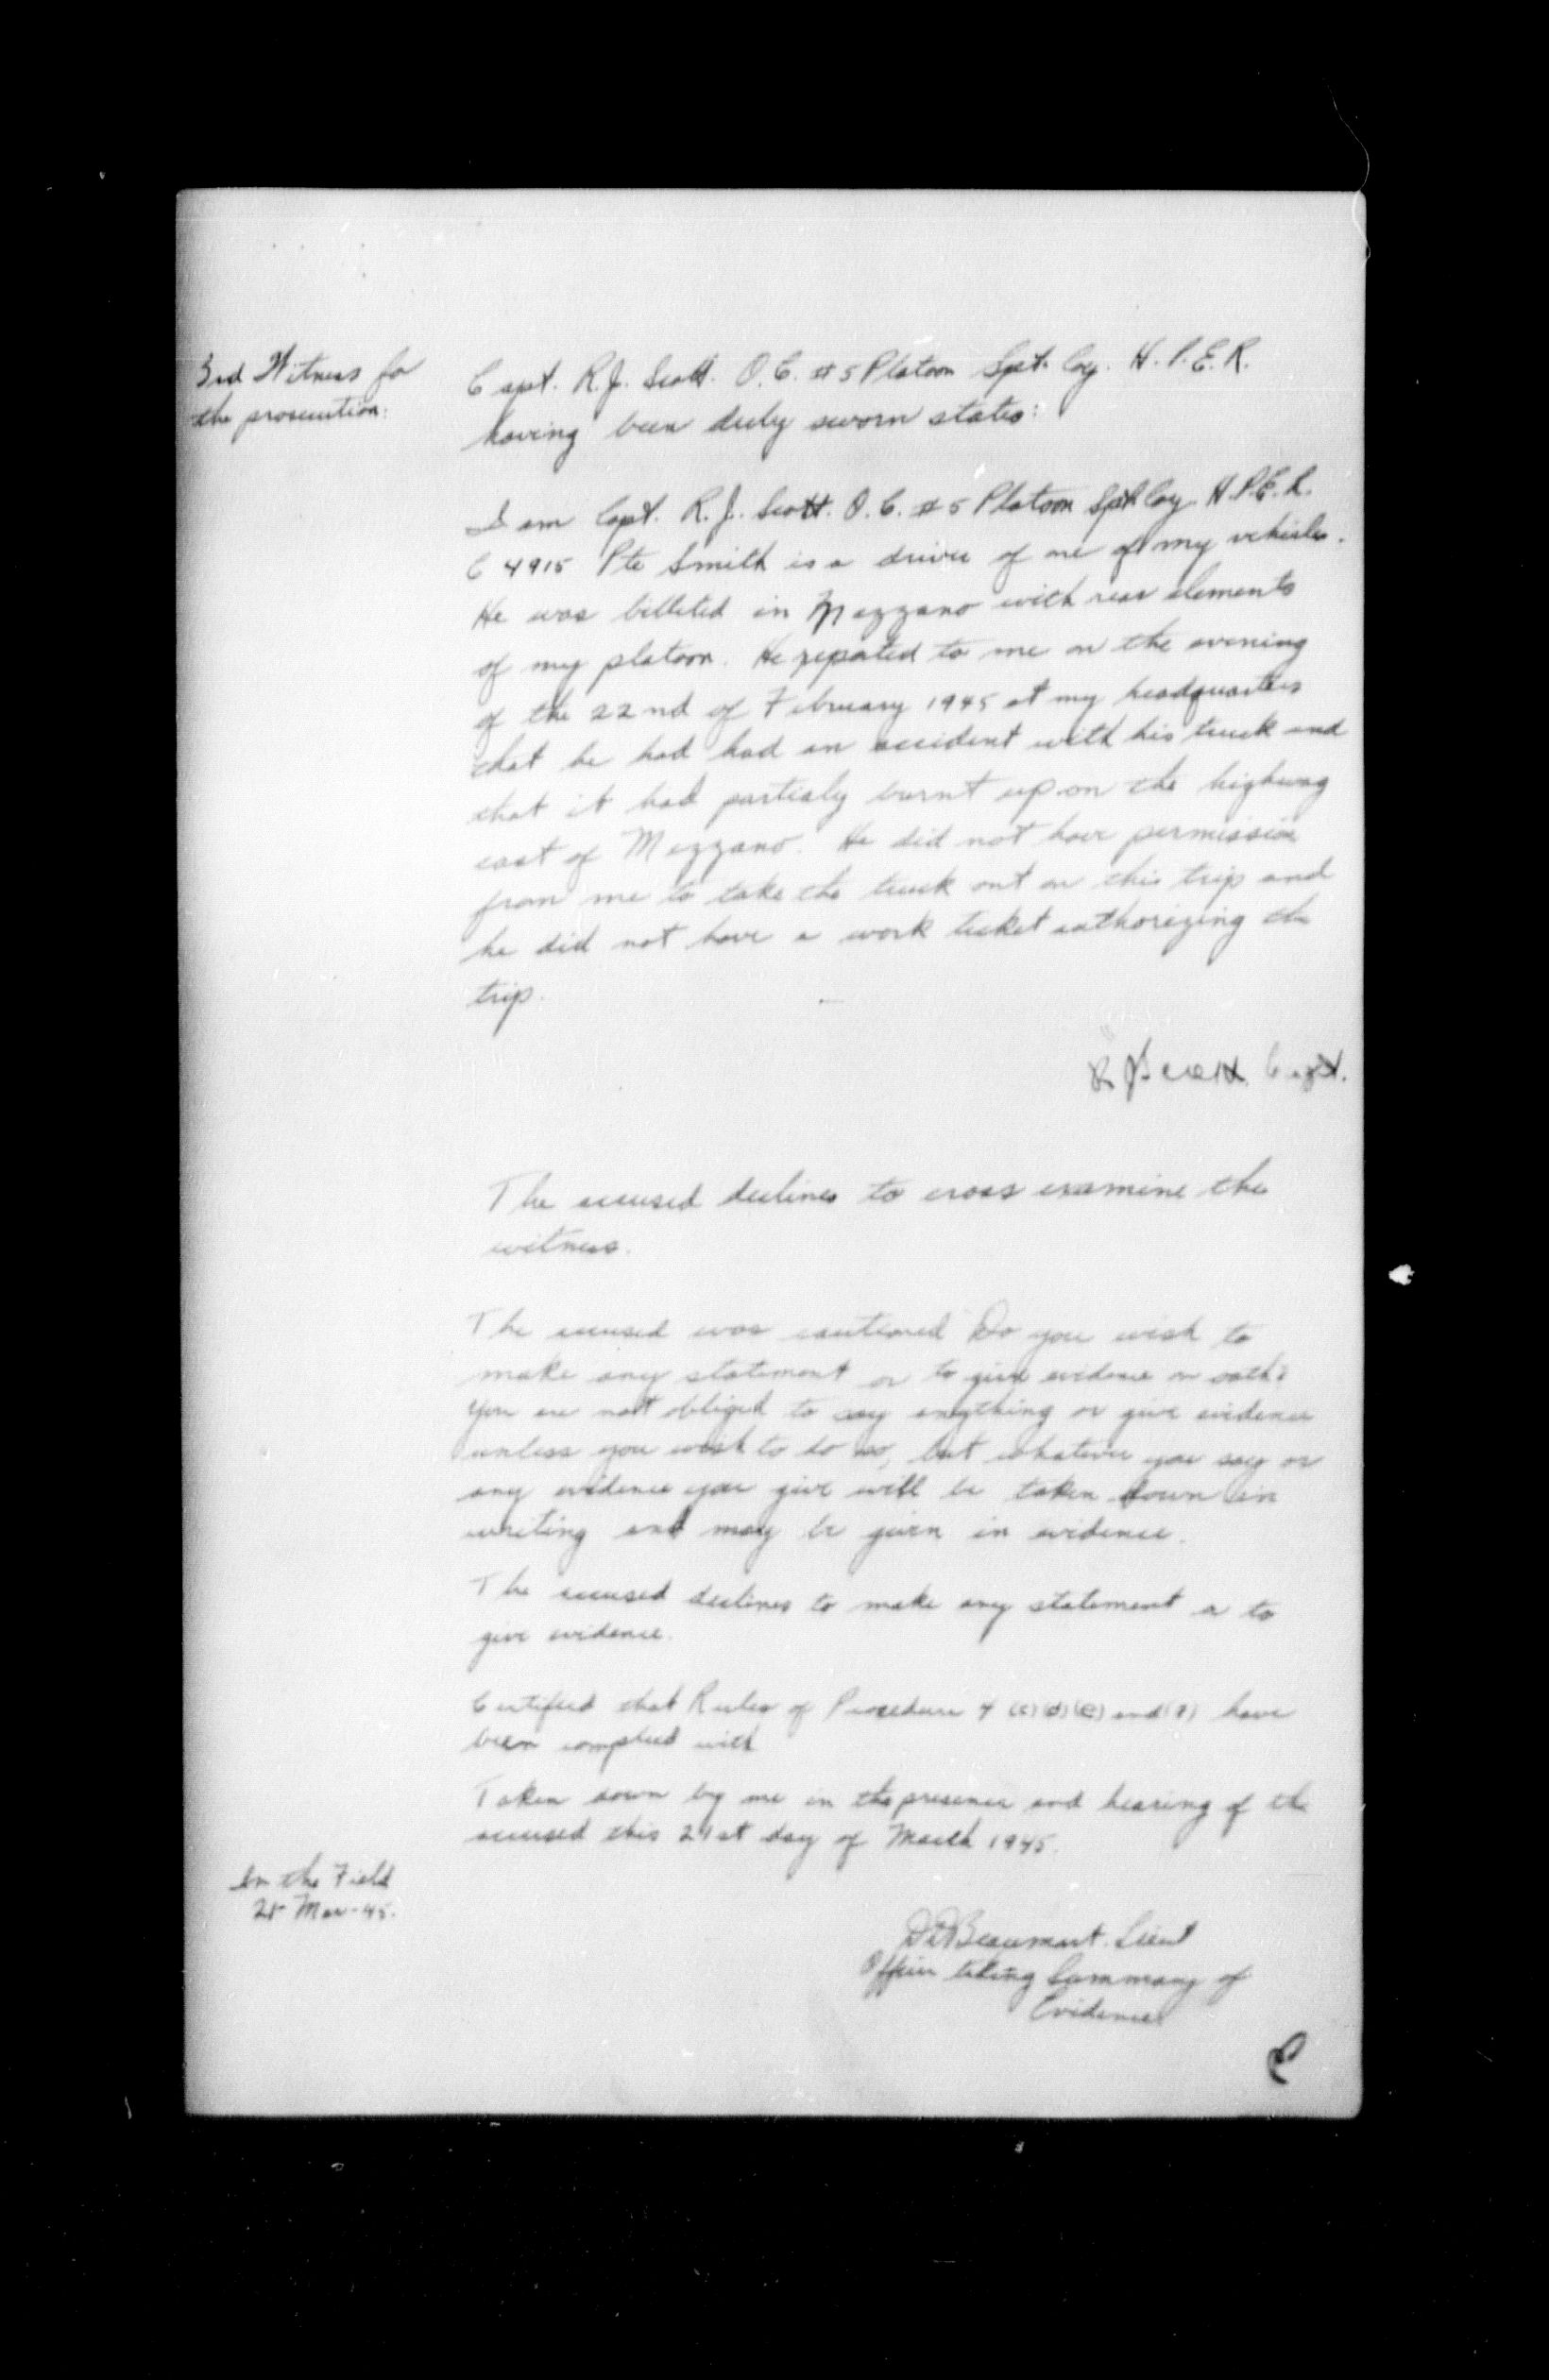 3rd Witness for
the prosecution:
Capt. R.J. Scott. O.C. #5 Platoon Spt. Coy. H.P.E.R.
having been duly sworn states:
I am Capt. R.J. Scott. O.C. #5 Platoon Spt Coy H.P.E.R.
C 4915 Pte Smith is a driver of one of my vehicles.
He was billeted in Mezzano with rear elements
of my platoon. He reported to me on the evening
of the 22nd of February 1945 at my headquarters
that he had had an accident with his truck and
that it had partialy burnt up on the highway
east of Mezzano. He did not have permission
from me to take the truck out on this trip and
he did not have a work ticket authorizing the
trip.
R J Scott Capt.
The accused declines to cross examine the
witness.
The accused was cautioned "Do you wish to
make any statement or to give evidence on oath?
You are not obliged to say anything or give evidence
unless you wish to do so, but whatever you say or
any evidence you give will be taken down in
writing and may be given in evidence.
The accused declines to make any statement or to
give evidence.
Certified that Rules of Procedure 4 (c)(d)(e) and have
been complied with
Taken down by me in the presence and hearing of the
accused this 21st day of March 1945.
In the Field
21 Mar-45.
Beaumont. Lieut
Officer taking Summary of
Evidence